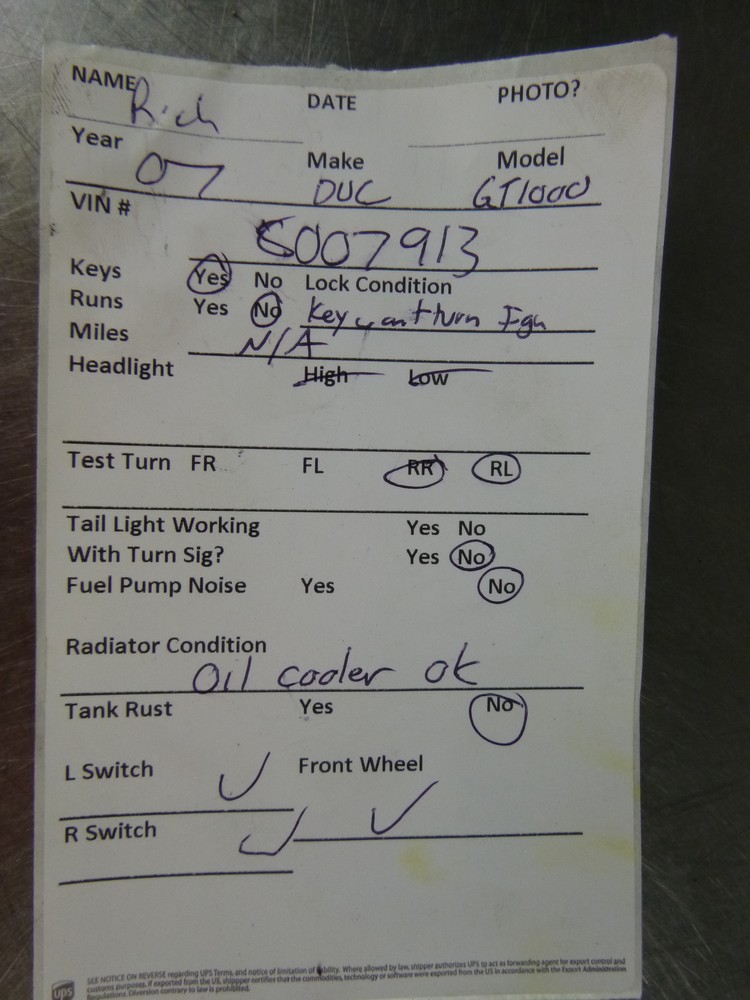 NAME Rich DATE PHOTO?
Year 07 Make DUC Model GT1000
VIN # 5007913
Keys Yes No Lock Condition
Runs Yes No Key cant turn Ign
Miles N/A
Headlight High Low
Test Turn FR FL RR RL
Tail Light Working Yes No
With Turn Sig? Yes No
Fuel Pump Noise Yes No
Radiator Condition
Oil cooler ok
Tank Rust Yes No
L Switch ✓ Front Wheel
R Switch ✓ ✓
SEE NOTICE ON REVERSE regarding UPS Terms, and notice of limitation of liability. Where allowed by law, shipper authorizes UPS to act as forwarding agent for export control and
customs purposes. If exported from the US, shipper certifies that the commodities, technology or software were exported from the US in accordance with the Export Administration
ups Regulations. Diversion contrary to law is prohibited.